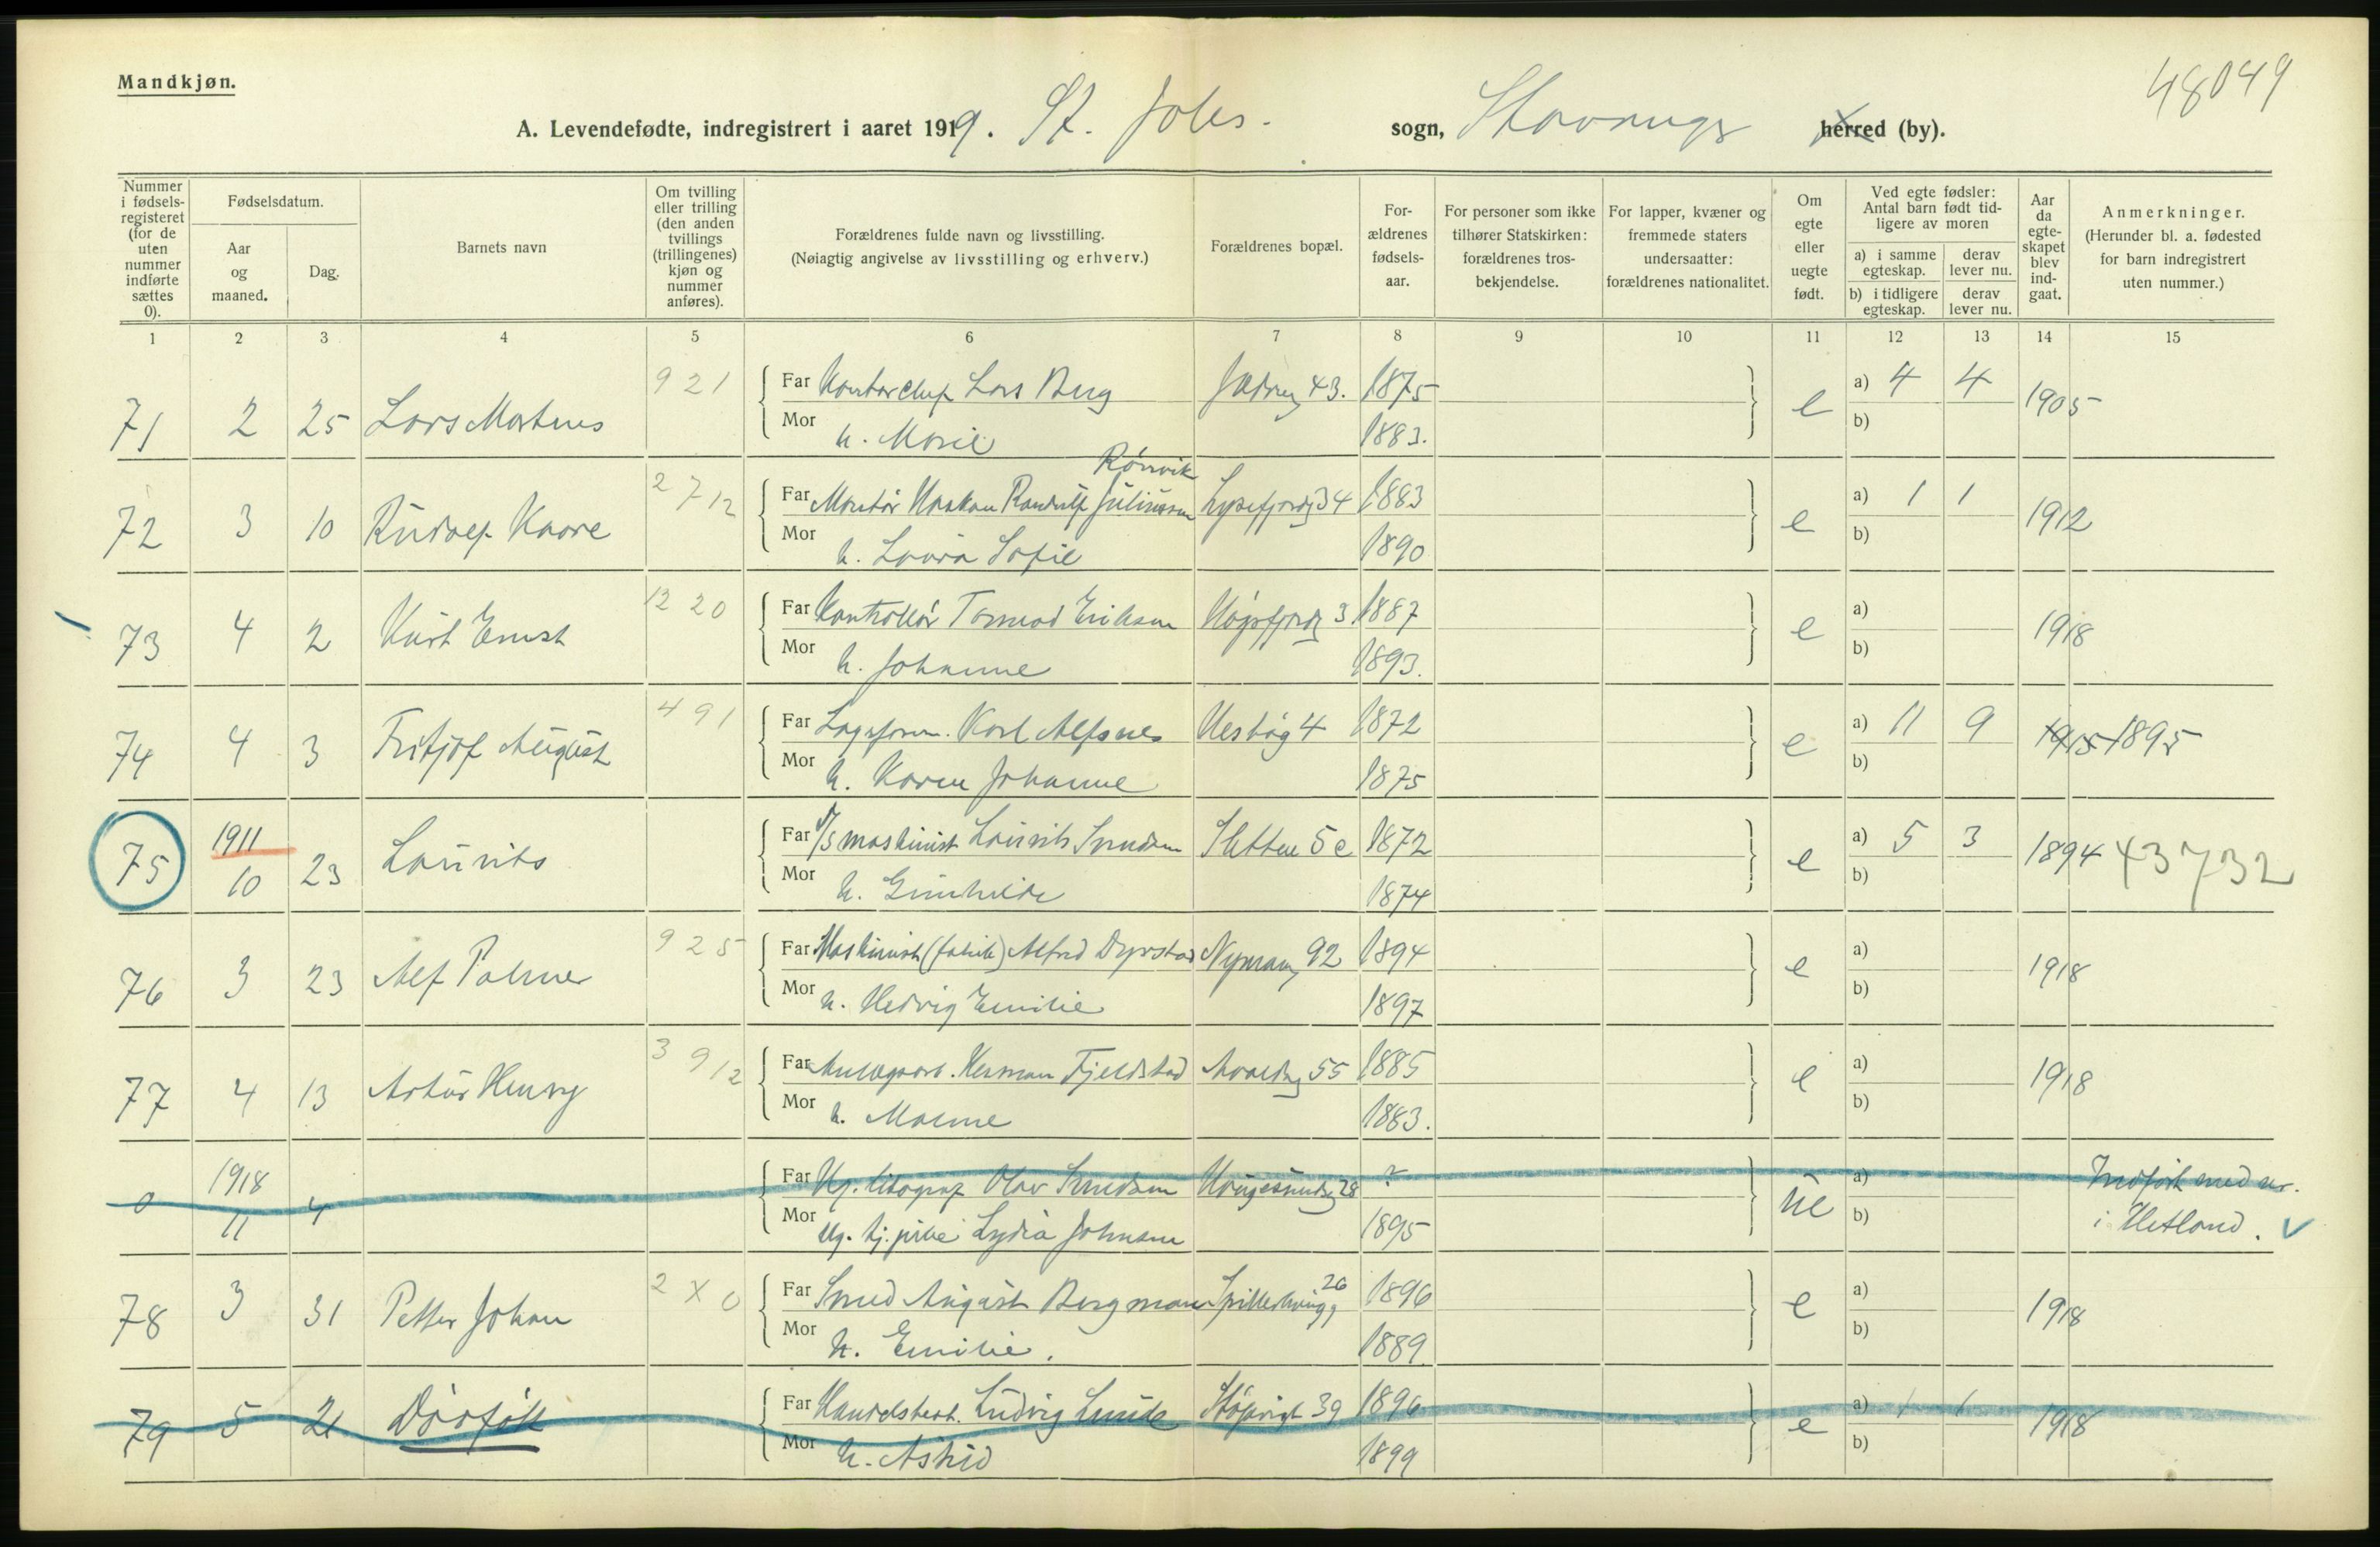 Mandkjøn.
48049
A. Levendefødte, indregistrert i aaret 1919. St. Johs. sogn, Stavanger herred (by).
Nummer i fødsels-registeret (for de uten nummer indførte sættes 0).
Fødselsdatum.
Aar og maaned.
Dag.
Barnets navn
Om tvilling eller trilling (den anden tvillings (trillingenes) kjøn og nummer anføres).
Forældrenes fulde navn og livsstilling.
(Nøiagtig angivelse av livsstilling og erhverv.)
Forældrenes bopæl.
For-ældrenes fødsels-aar.
For personer som ikke tilhører Statskirken: forældrenes tros-bekjendelse.
For lapper, kvæner og fremmede staters undersaatter: forældrenes nationalitet.
Om egte eller uegte født.
Ved egte fødsler: Antal barn født tid-ligere av moren
a) i samme egteskap.
derav lever nu.
b) i tidligere egteskap.
derav lever nu.
Aar da egte-skapet blev ind-gaat.
Anmerkninger.
(Herunder bl. a. fødested for barn indregistrert uten nummer.)
1 2 3 4 5 6 7 8 9 10 11 12 13 14 15
71 2 25 Lars Martines 921 Far Kontorchef Lars Berg 43. 1875 e a) 4 4 1905
Mor h. Marie 1883. b)
Rønvik
72 3 10 Rudolf Kaare 2 7 12 Far Montør Haakon Randulf Juliussen Lysefjordg 34 1883 e a) 1 1 1912
Mor h. Laura Sofie 1890 b)
73 4 2 Kurt Ernst 12 20 Far Kontrollør Tormod Eriksen Høgsfjordg 3 1887 e a) 1918
Mor h. Johanne 1893. b)
74 4 3 Fritjof August 4 9 1 Far Lagsform. Karl Alfsnes 4 1872 e a) 11 9 1915 1895
Mor h. Karen Johanne 1875 b)
75 1911 10 23 Laurits Far D/S maskinist Laurits Svendsen Sletten 5c 1872 e a) 5 3 1894 43732
Mor h. Gunhilde 1874 b)
76 3 23 Alf Palmer 9 25 Far Maskinist (fabrik) Alfred Dyrstad Nymansv 92 1894 e a) 1918
Mor h. Hedvig Emilie 1897 b)
77 4 13 Artur Henry 3 9 12 Far Herman Fjeldstad 55 1885 e a) 1918
Mor h. Malene 1883. b)
0 1918 11 4 Far Ug. litograf Olav Svendsen Haugesundsg 28 ? ue a) Indført med nr.
Mor Ug. tj.pike Lydia Johnsen 1895 b) i Hetland.
26
78 3 31 Petter Johan 2 X 0 Far Smed August Bergman Spilderhaugg 1896 e a) 1918
Mor h. Emilie. 1889 b)
79 5 21 Dødfødt Far Handelsbest. Ludvig Lunde 39 1896 e a) 1 1 1918
Mor h. Astrid 1899 b)